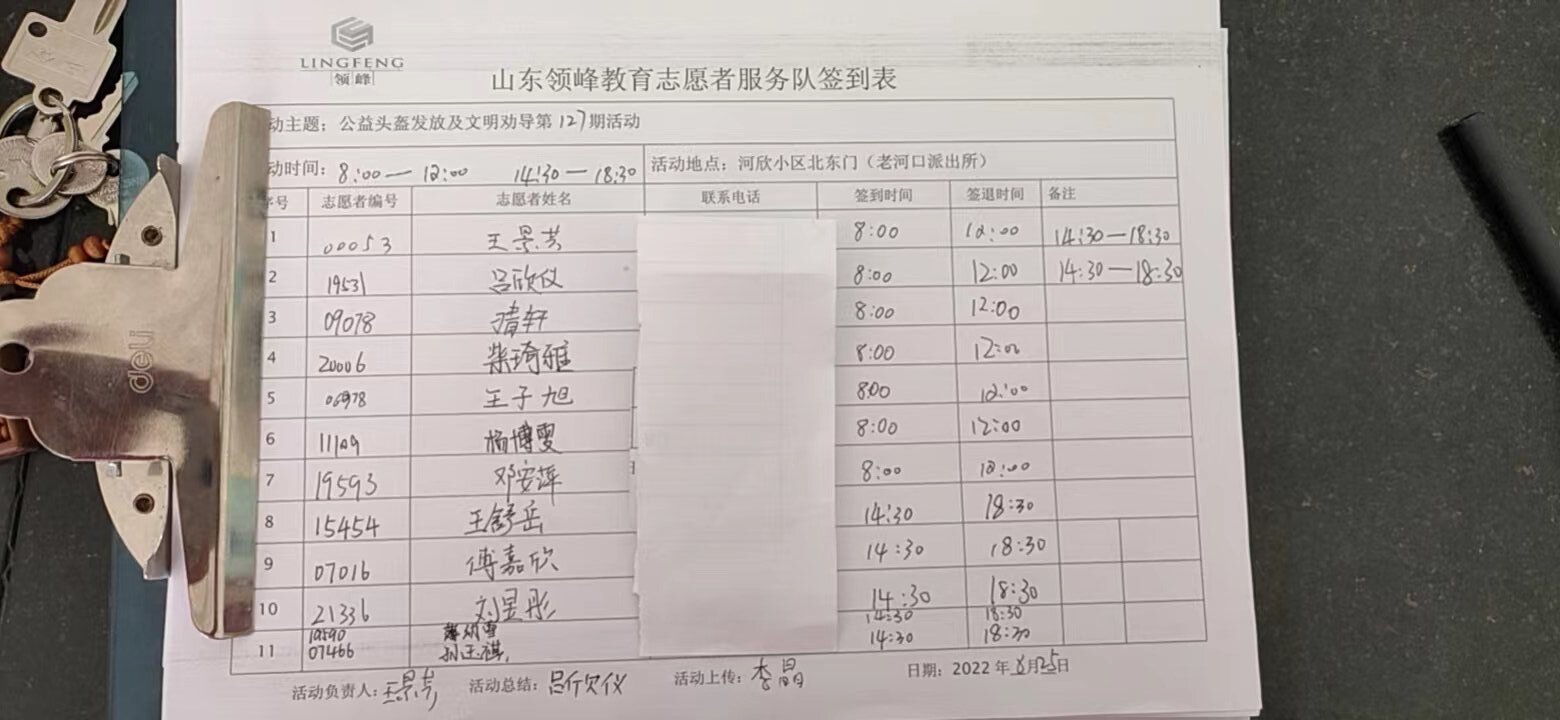 LINGFENG
领峰
山东领峰教育志愿者服务队签到表
动主题：公益头盔发放及文明劝导第127期活动
动时间：8:00—12:00 14:30—18:30 活动地点：河欣小区北东门（老河口派出所）
序号 志愿者编号 志愿者姓名 联系电话 签到时间 签退时间 备注
1 00053 王景芳 8:00 12:00 14:30—18:30
2 19531 吕欣仪 8:00 12:00 14:30—18:30
3 09078 8:00 12:00
4 20006 柴琦雅 8:00 12:00
5 06978 王子旭 8:00 12:00
6 11109 杨博雯 8:00 12:00
7 19593 邓安萍 8:00 12:00
8 15454 王舒岳 14:30 18:30
9 07016 傅嘉欣 14:30 18:30
10 21336 刘昱彤 14:30 18:30
19590 14:30 18:30
11 07466 孙玉祺 14:30 18:30
活动负责人：王景芳 活动总结：吕欣仪 活动上传：李晶 日期：2022年6月25日
deli